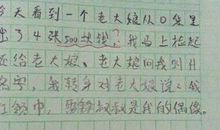 天看到一个老大娘从口袋里
了4张500块钱，我马上捡起
还给老大娘。老大娘问我叫什
名字，我转身对老大娘说：我
红领巾，雷锋叔叔是我的偶像。